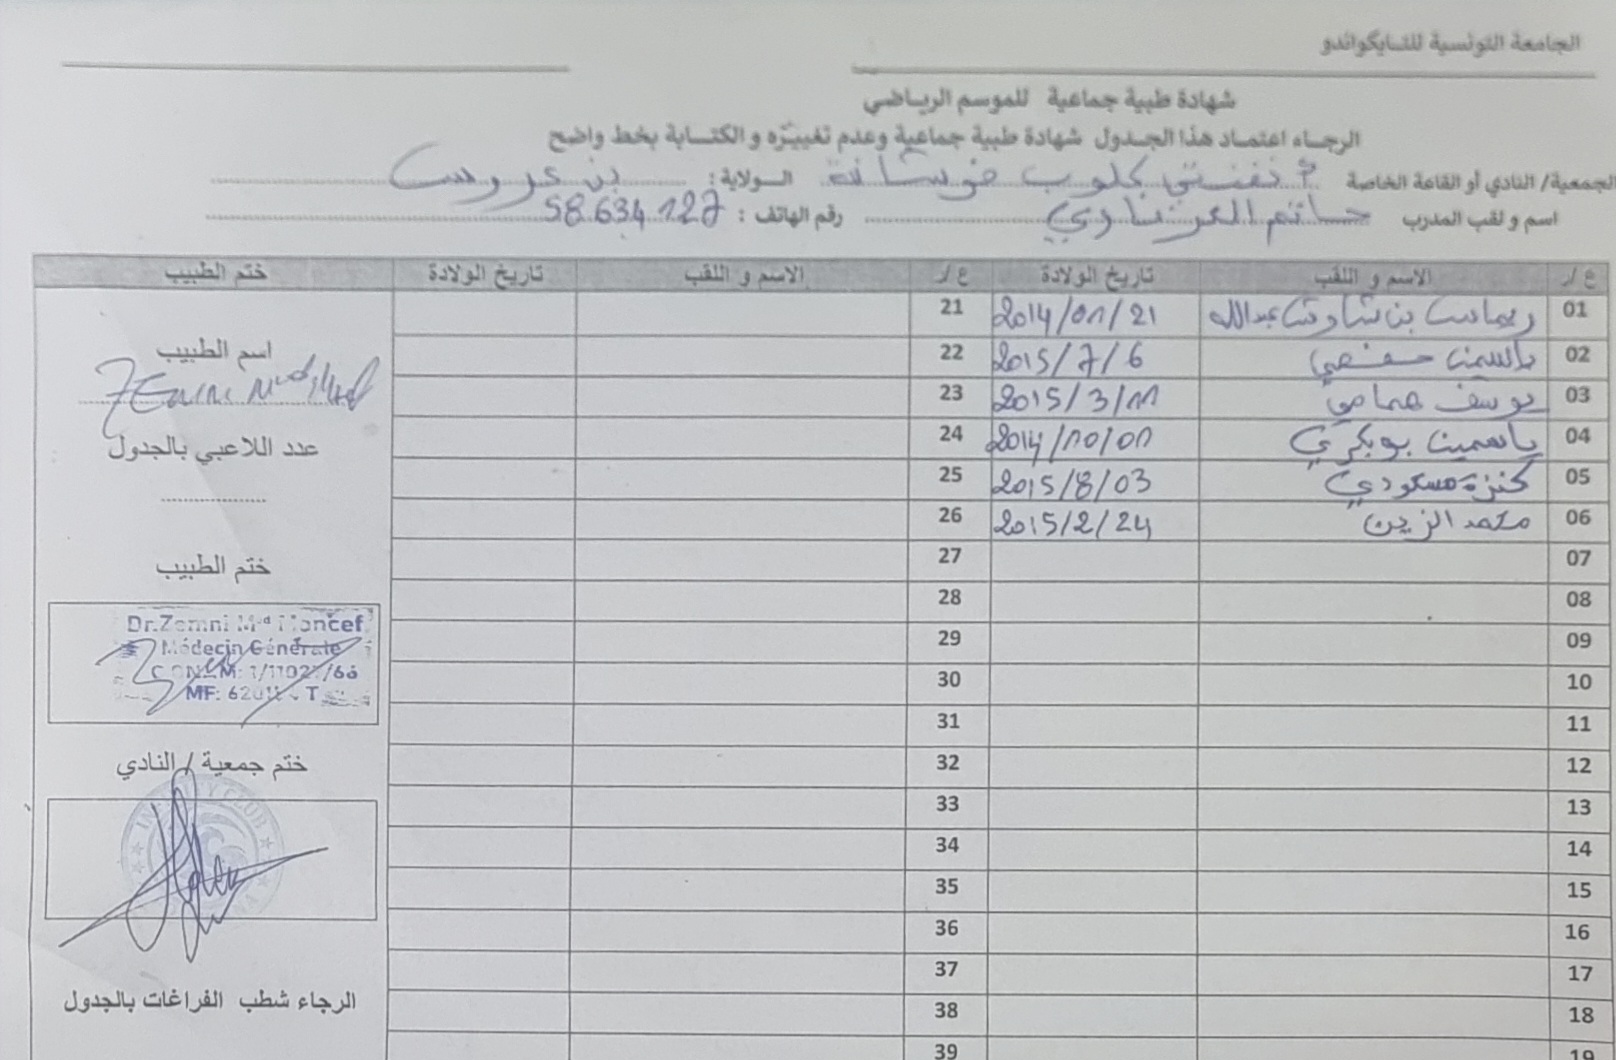 الجامعة التونسية للتايكواندو
شهادة طبية جماعية للموسم الرياضي
الرجاء اعتماد هذا الجدول شهادة طبية جماعية وعدم تغييره و الكتابة بخط واضح
الجمعية/ النادي أو القاعة الخاصة كلوب الولاية: بن عروس
اسم و لقب المدرب حاتم رقم الهاتف: 58.634.127
ع / الاسم و اللقب تاريخ الولادة ع / الاسم و اللقب تاريخ الولادة ختم الطبيب
01 بن عبدالله 2014/01/21 21
02 ياسمين حفصي 2015/7/6 22
03 يوسف همامي 2015/3/11 23
04 ياسمين بوبكري 2014/10/01 24
05 كنزة مسعودي 2015/8/03 25
06 محمد الزين 2015/2/24 26
07 27
08 28
09 29
10 30
11 31
12 32
13 33
14 34
15 35
16 36
17 37
18 38
19 39
اسم الطبيب
عدد اللاعبي بالجدول
ختم الطبيب
Dr.Zemni Mᵈ Moncef
Médecin Générale
MF:
ختم جمعية / النادي
الرجاء شطب الفراغات بالجدول